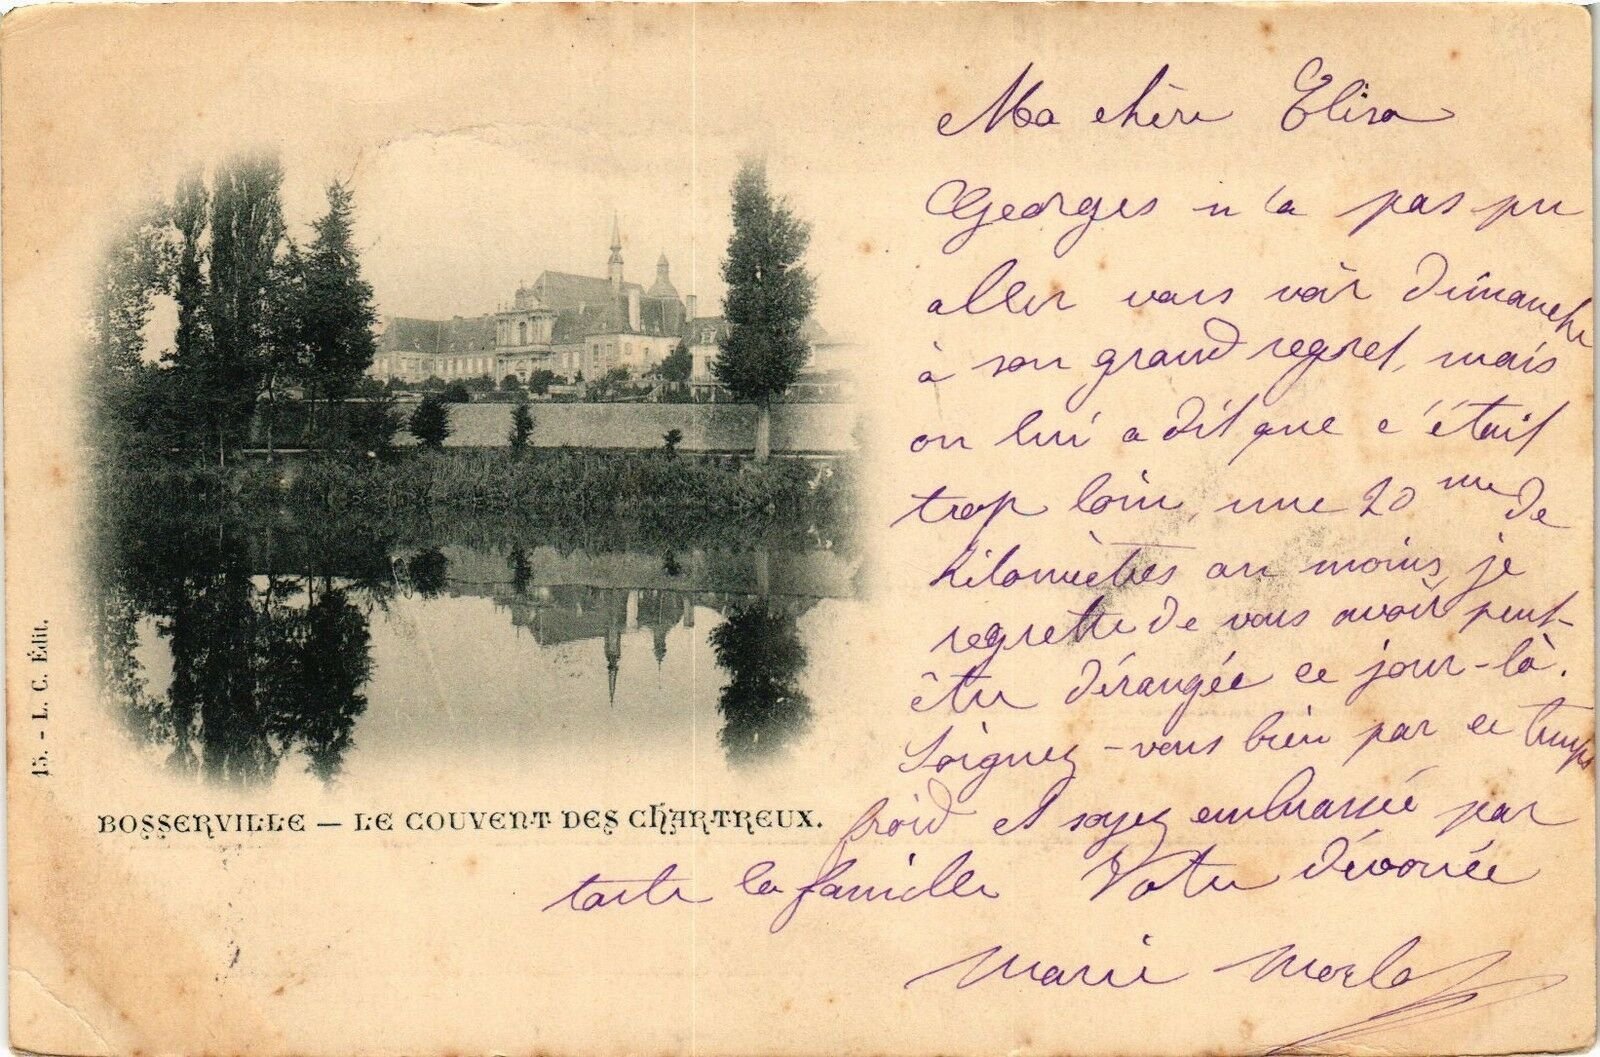 Ma chère Elisa
Georges n'a pas pu
aller vous voir Dimanche
à son grand regret, mais
on lui a dit que c'était
trop loin, une 20 me de
kilomètres au moins, je
regrette de vous avoir peut-
être dérangée ce jour-là.
Soignez-vous bien par ce temps
froid et soyez embrassée par
toute la famille Votre dévouée
Marie
BOSSERVILLE — LE COUVENT DES CHARTREUX.
15. - L. C. Édit.